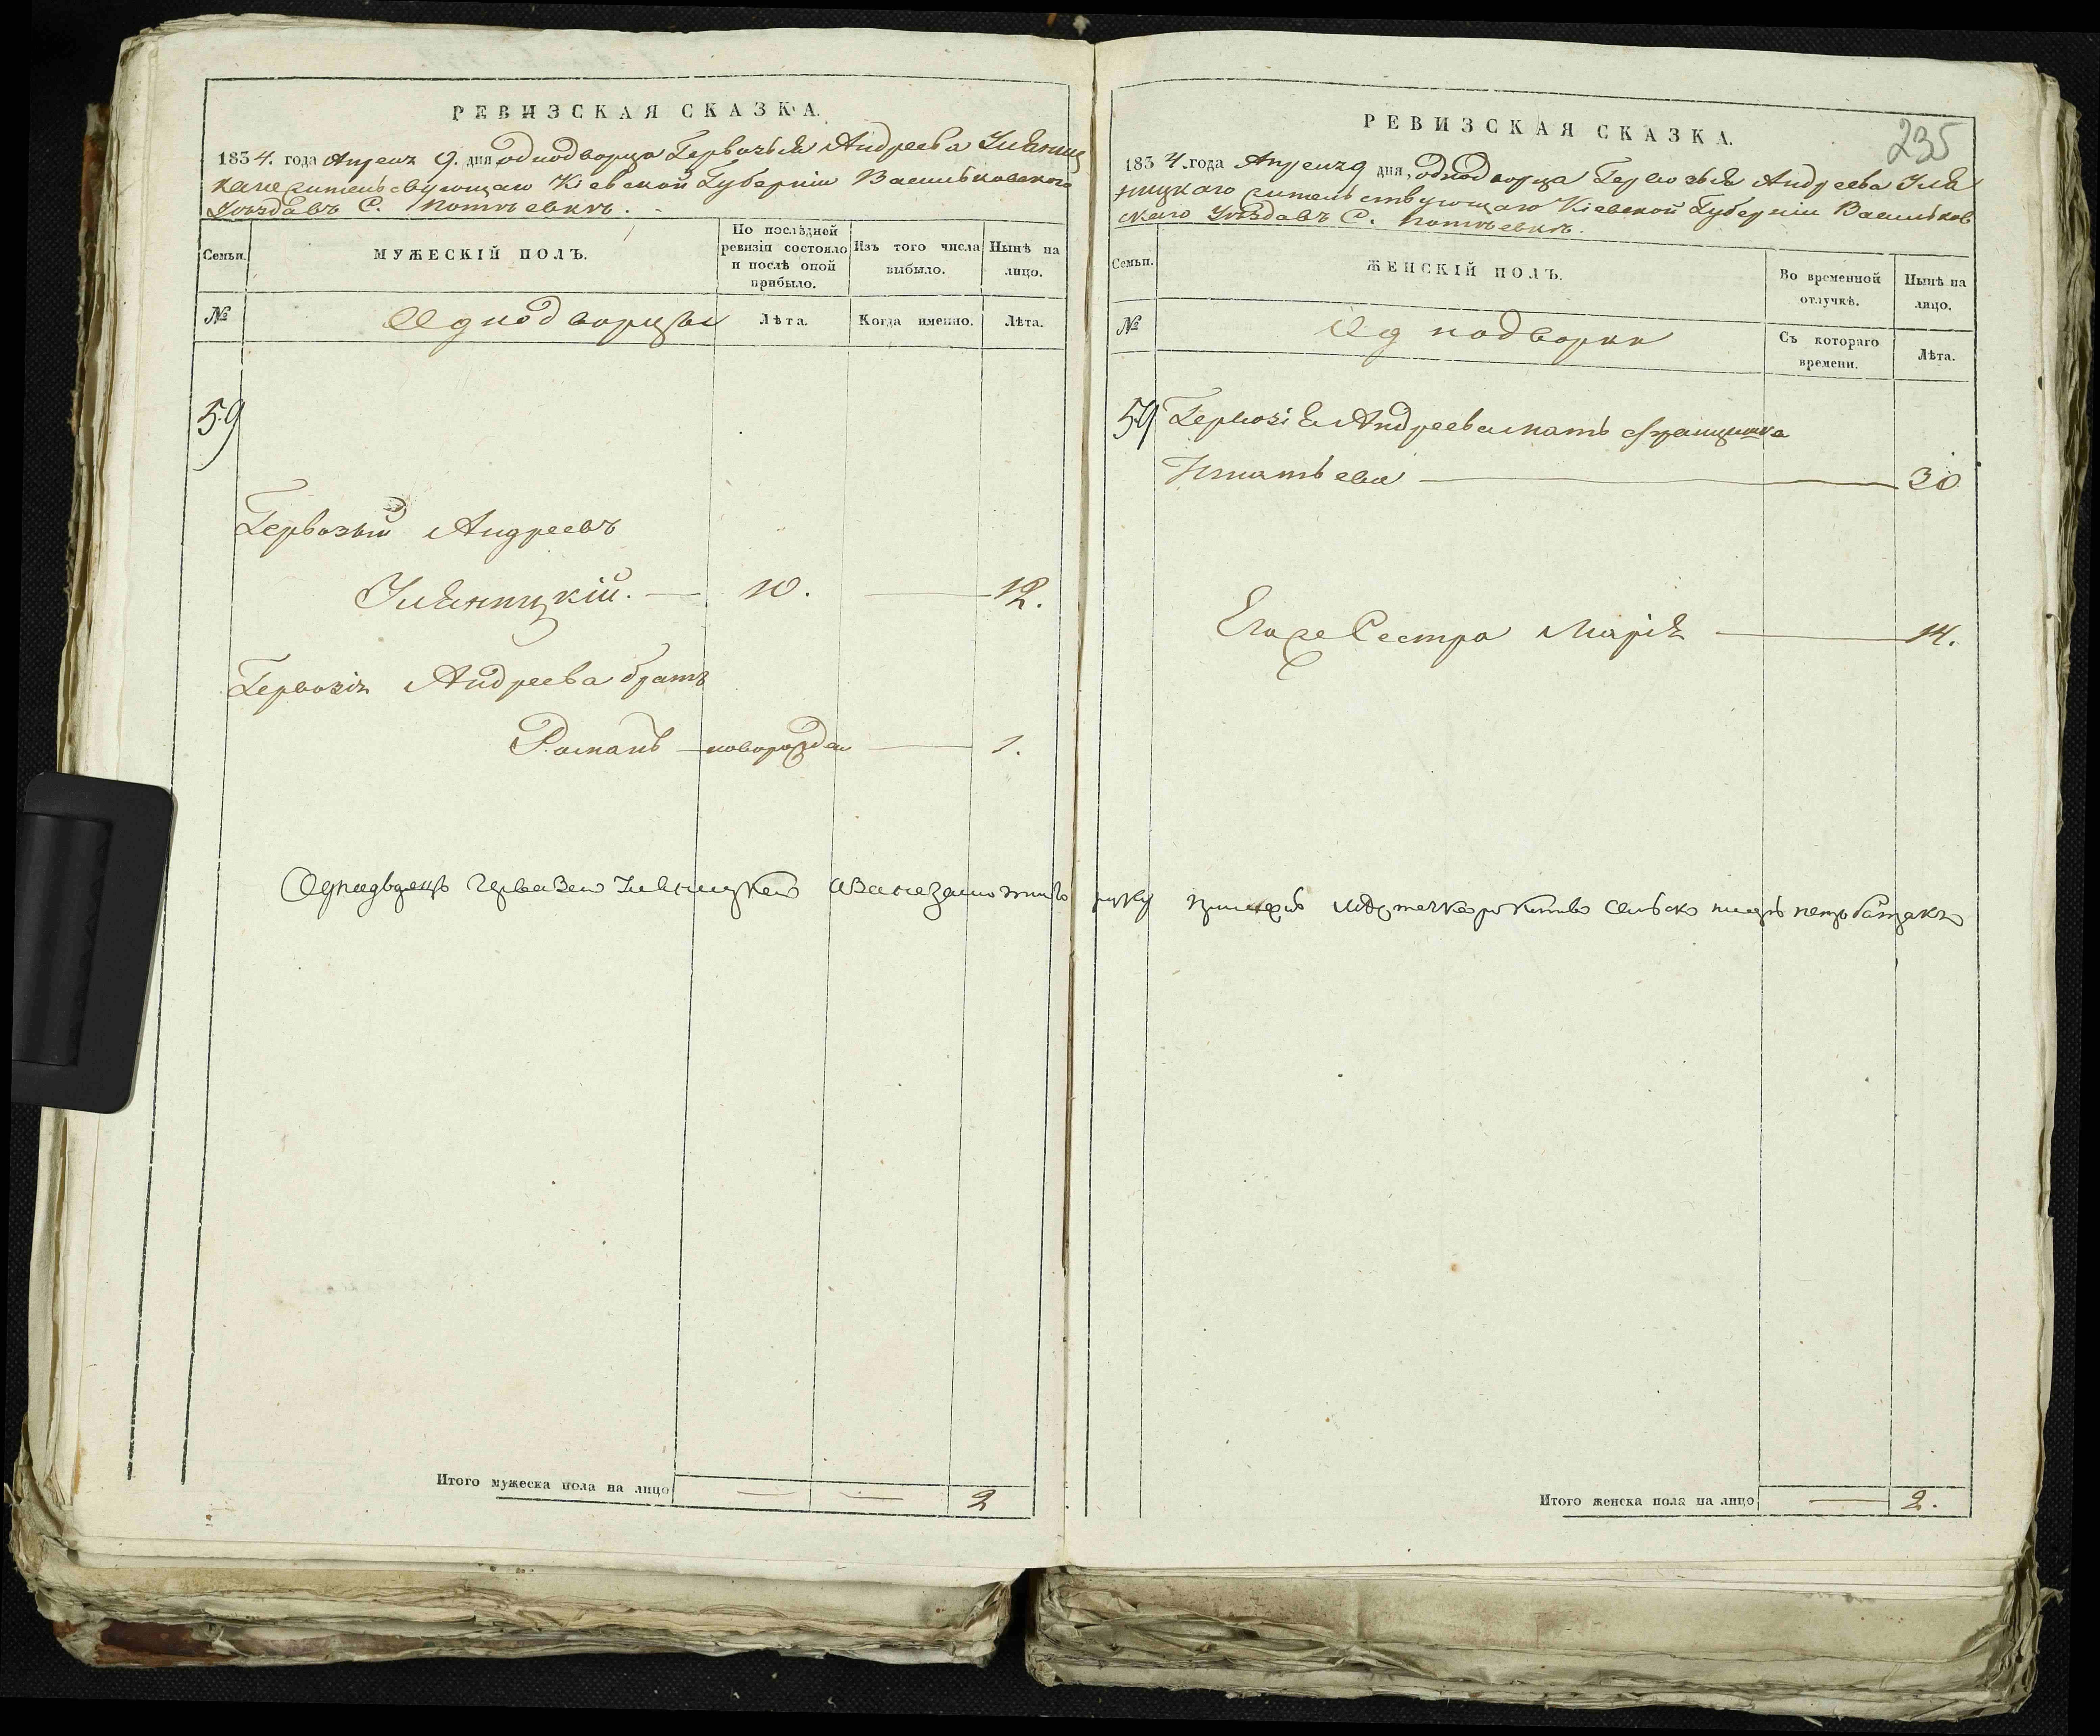 РЕВИЗСКАЯ СКАЗКА.
1834. года Апреля 9. дня однодворца Гервозыя Андреева Улянец
каго жительсвующаго Кіевской Губерніи Васильковского
Уѣзда въ С. Потѣевкѣ.
Семьи.
МУЖЕСКІЙ ПОЛЪ.
По послѣдней ревизіи состояло и послѣ оной прибыло.
Изъ того числа выбыло.
Нынѣ на лицо.
№
Однодворцы
Лѣта.
Когда именно.
Лѣта.
59
Гервозый Андреевъ
Уляницкій. — 10. — 12.
Гервозія Андреева братъ
Романъ — новорожден — 1.
Однодворецъ Уляницкей
Итого мужеска пола на лицо — — 2
235
РЕВИЗСКАЯ СКАЗКА.
1834. года Апреля 9 дня, однодворца Гервозыя Андреева Уля
ницкаго жительствующаго Кіевской Губерніи Васильков
скаго Уѣзда въ С. Потѣевкѣ.
Семьи.
ЖЕНСКІЙ ПОЛЪ.
Во временной отлучкѣ.
Нынѣ на лицо.
№
Однодворки
Съ котораго времени.
Лѣта.
59 Гервозія Андреева мать Францишка
Игнатьева — 30
Его же Сестра Марія — 14.
руку
Итого женска пола на лицо — 2.